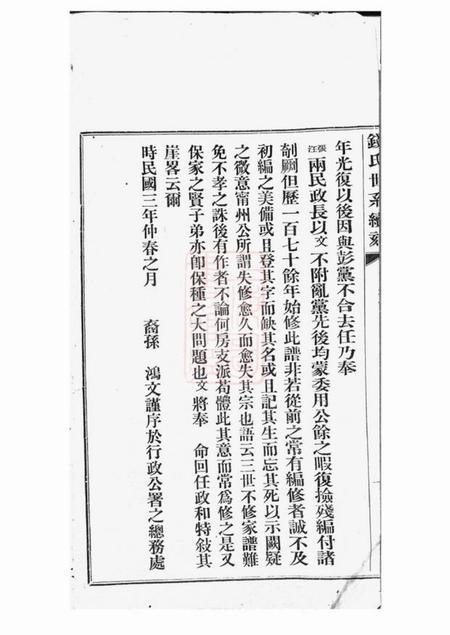 錢氏世系續刻
年光復以後因與彭黨不合去任乃奉
張汪兩民政長以文不附亂黨先後均蒙委用公餘之暇復撿殘編付諸
剞劂但歷一百七十餘年始修此譜非若從前之常有編修者誠不及
初編之美備或且登其字而缺其名或且記其生而忘其死以示闕疑
之微意甯州公所謂失修愈久而愈失其宗也語云三世不修家譜難
免不孝之誅後有作者不論何房支派苟體此其意而常爲修之是又
保家之賢子弟亦卽保種之大問題也文將奉 命回任政和特敍其
崖畧云爾
時民國三年仲春之月 裔孫 鴻文謹序於行政公署之總務處